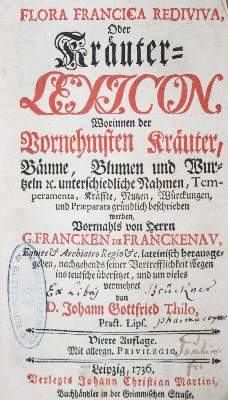 FLORA FRANCICA REDIVIVA,
Oder
Kräuter-
LEXICON,
Worinnen der
Vornehmsten Kräuter,
Bäume, Blumen und Wur-
tzeln ꝛc. unterschiedliche Nahmen, Tem-
peramenta, Kräffte, Nutzen, Würckungen,
und Præparata gründlich beschrieben
werden,
Vormahls von Herrn
G. FRANCKEN DE FRANCKENAU,
Equite & Archiatro Regio &c. lateinisch herausge-
geben, nachgehends seiner Vortrefflichkeit wegen
ins teutsche übersetzet, und um vieles
vermehret
Ex Libris Brückner
von
D. Johann Gottfried Thilo,
Pract. Lips.
Vierte Auflage.
Mit allergn. PRIVILEGIO.
Leipzig, 1736.
Verlegts Johann Christian Martini,
Buchhändler in der Grimmischen Straße.